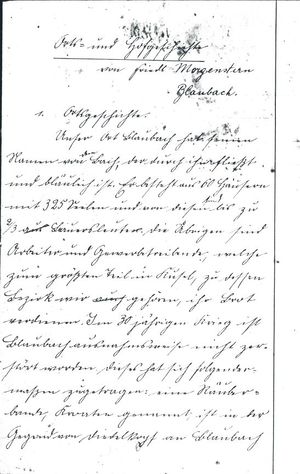 Orts- und Hofgeschichte
von Friedl Morgenstern
Blaubach.
1. Ortsgeschichte.
Unser Ort Blaubach hat seinen
Namen von dem Bach, der durch ihn fließt
und bläulich ist. Er besteht aus 60 Häusern
mit 325 Seelen und von diesen sind bis zu
2/3 aus Bauersleuten, die übrigen sind
Arbeiter und Gewerbetreibende, welche
zum größten Teil in Kusel, zu dessen
Bezirk wir auch gehören, ihr Brot
verdienen. Im 30 jährigen Krieg ist
Blaubach ausnahmsweise nicht zer-
stört worden, dieses hat sich folgender-
maßen zugetragen: eine Räuber-
bande, Kroaten genannt, ist in der
Gegend von Diedelkopf an Blaubach